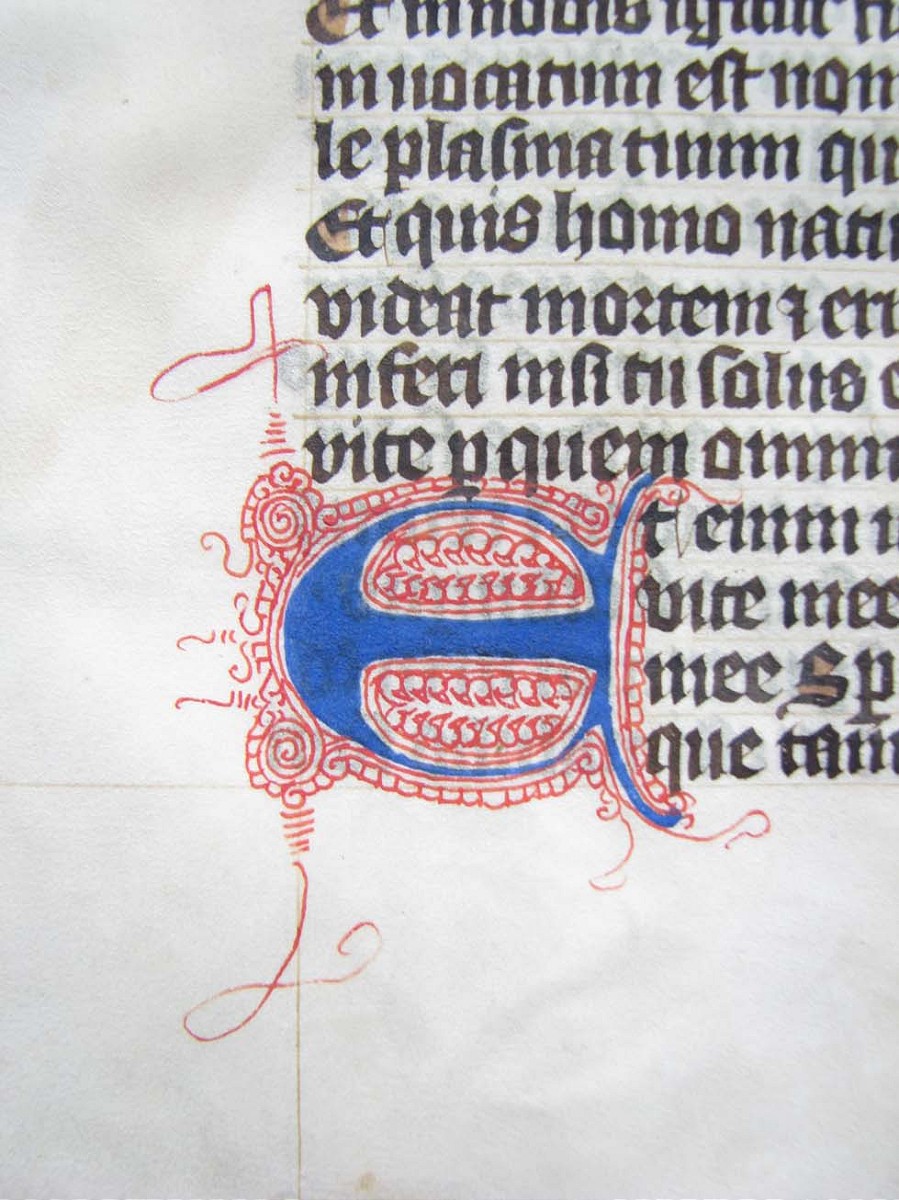 Et in nobis igitur
in uocatum est nom
le plasma tuum qu
Et quis homo natu
videat mortem ⁊ eri
inferi nisi tu solus
vite ꝑ quem omni
Et enim u
vite mee
mee Sp
que tam